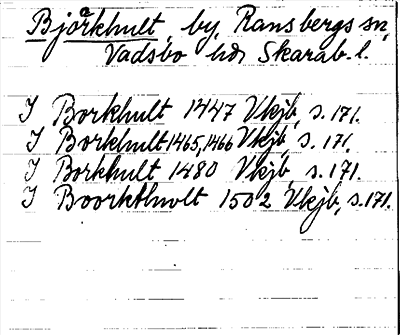 Björkhult, by, Ransbergs sn,
Vadsbo hd Skarab. l.
I Borkhult 1447 Vkjb, s. 171.
I Borkhult 1465, 1466 Vkjb, s. 171.
I Borkhult 1480 Vkjb, s. 171.
I Boorkthwlt 1502 Vkjb, s. 171.